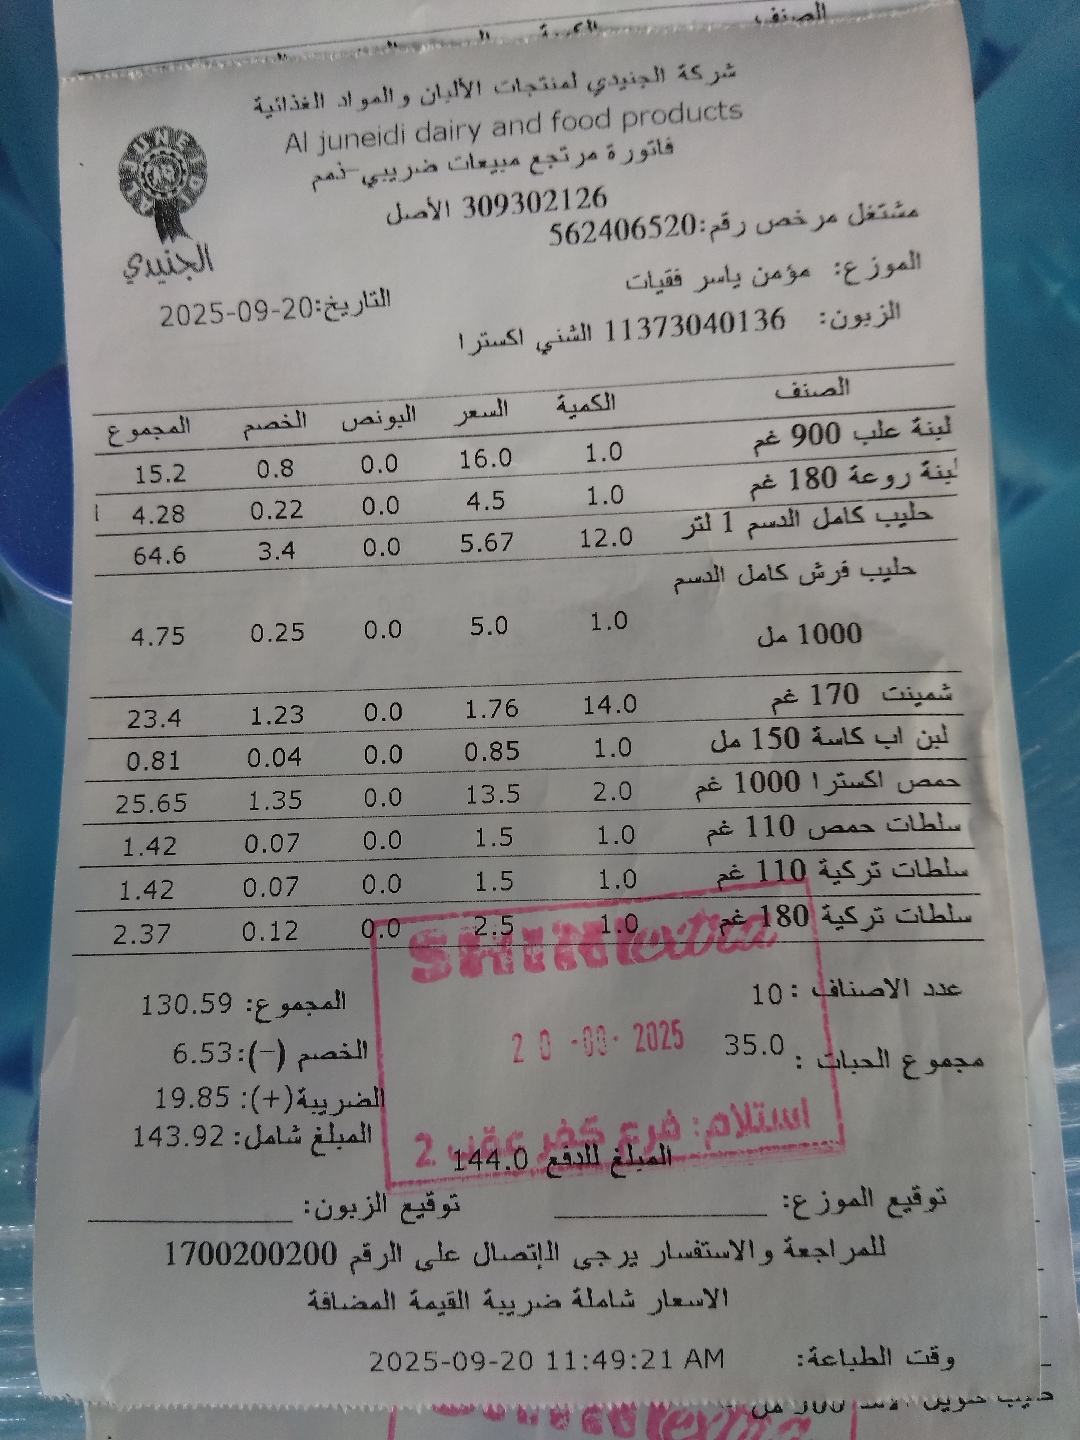 الصنف
شركة الجنيدي لمنتجات الألبان والمواد الغذائية
Al juneidi dairy and food products
فاتورة مرتجع مبيعات ضريبي-ذمم
309302126 الأصل
مشتغل مرخص رقم:562406520
الجنيدي
الموزع: مؤمن ياسر فقيات
التاريخ:2025-09-20
الزبون: 11373040136 الشني اكسترا
الصنف الكمية السعر البونص الخصم المجموع
لبنة علب 900 غم 1.0 16.0 0.0 0.8 15.2
لبنة روعة 180 غم 1.0 4.5 0.0 0.22 4.28
حليب كامل الدسم 1 لتر 12.0 5.67 0.0 3.4 64.6
حليب فرش كامل الدسم
1000 مل 1.0 5.0 0.0 0.25 4.75
شمينت 170 غم 14.0 1.76 0.0 1.23 23.4
لبن اب كاسة 150 مل 1.0 0.85 0.0 0.04 0.81
حمص اكسترا 1000 غم 2.0 13.5 0.0 1.35 25.65
سلطات حمص 110 غم 1.0 1.5 0.0 0.07 1.42
سلطات تركية 110 غم 1.0 1.5 0.0 0.07 1.42
سلطات تركية 180 غم 1.0 2.5 0.0 0.12 2.37
extra
عدد الاصناف : 10 المجموع: 130.59
20 2025
مجموع الحبات : 35.0 الخصم (-): 6.53
الضريبة(+): 19.85
المبلغ شامل: 143.92
استلام: فرع كفر عقب 2
المبلغ للدفع 144.0
توقيع الموزع: توقيع الزبون:
للمراجعة والاستفسار يرجى الإتصال على الرقم 1700200200
الاسعار شاملة ضريبة القيمة المضافة
وقت الطباعة: 2025-09-20 11:49:21 AM
extra